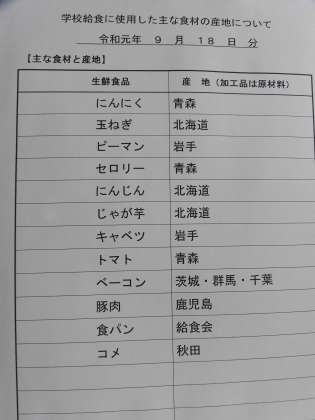 学校給食に使用した主な食材の産地について
令和元年 9 月 18 日 分
【主な食材と産地】
生鮮食品 産 地（加工品は原材料）
にんにく 青森
玉ねぎ 北海道
ピーマン 岩手
セロリー 青森
にんじん 北海道
じゃが芋 北海道
キャベツ 岩手
トマト 青森
ベーコン 茨城・群馬・千葉
豚肉 鹿児島
食パン 給食会
コメ 秋田